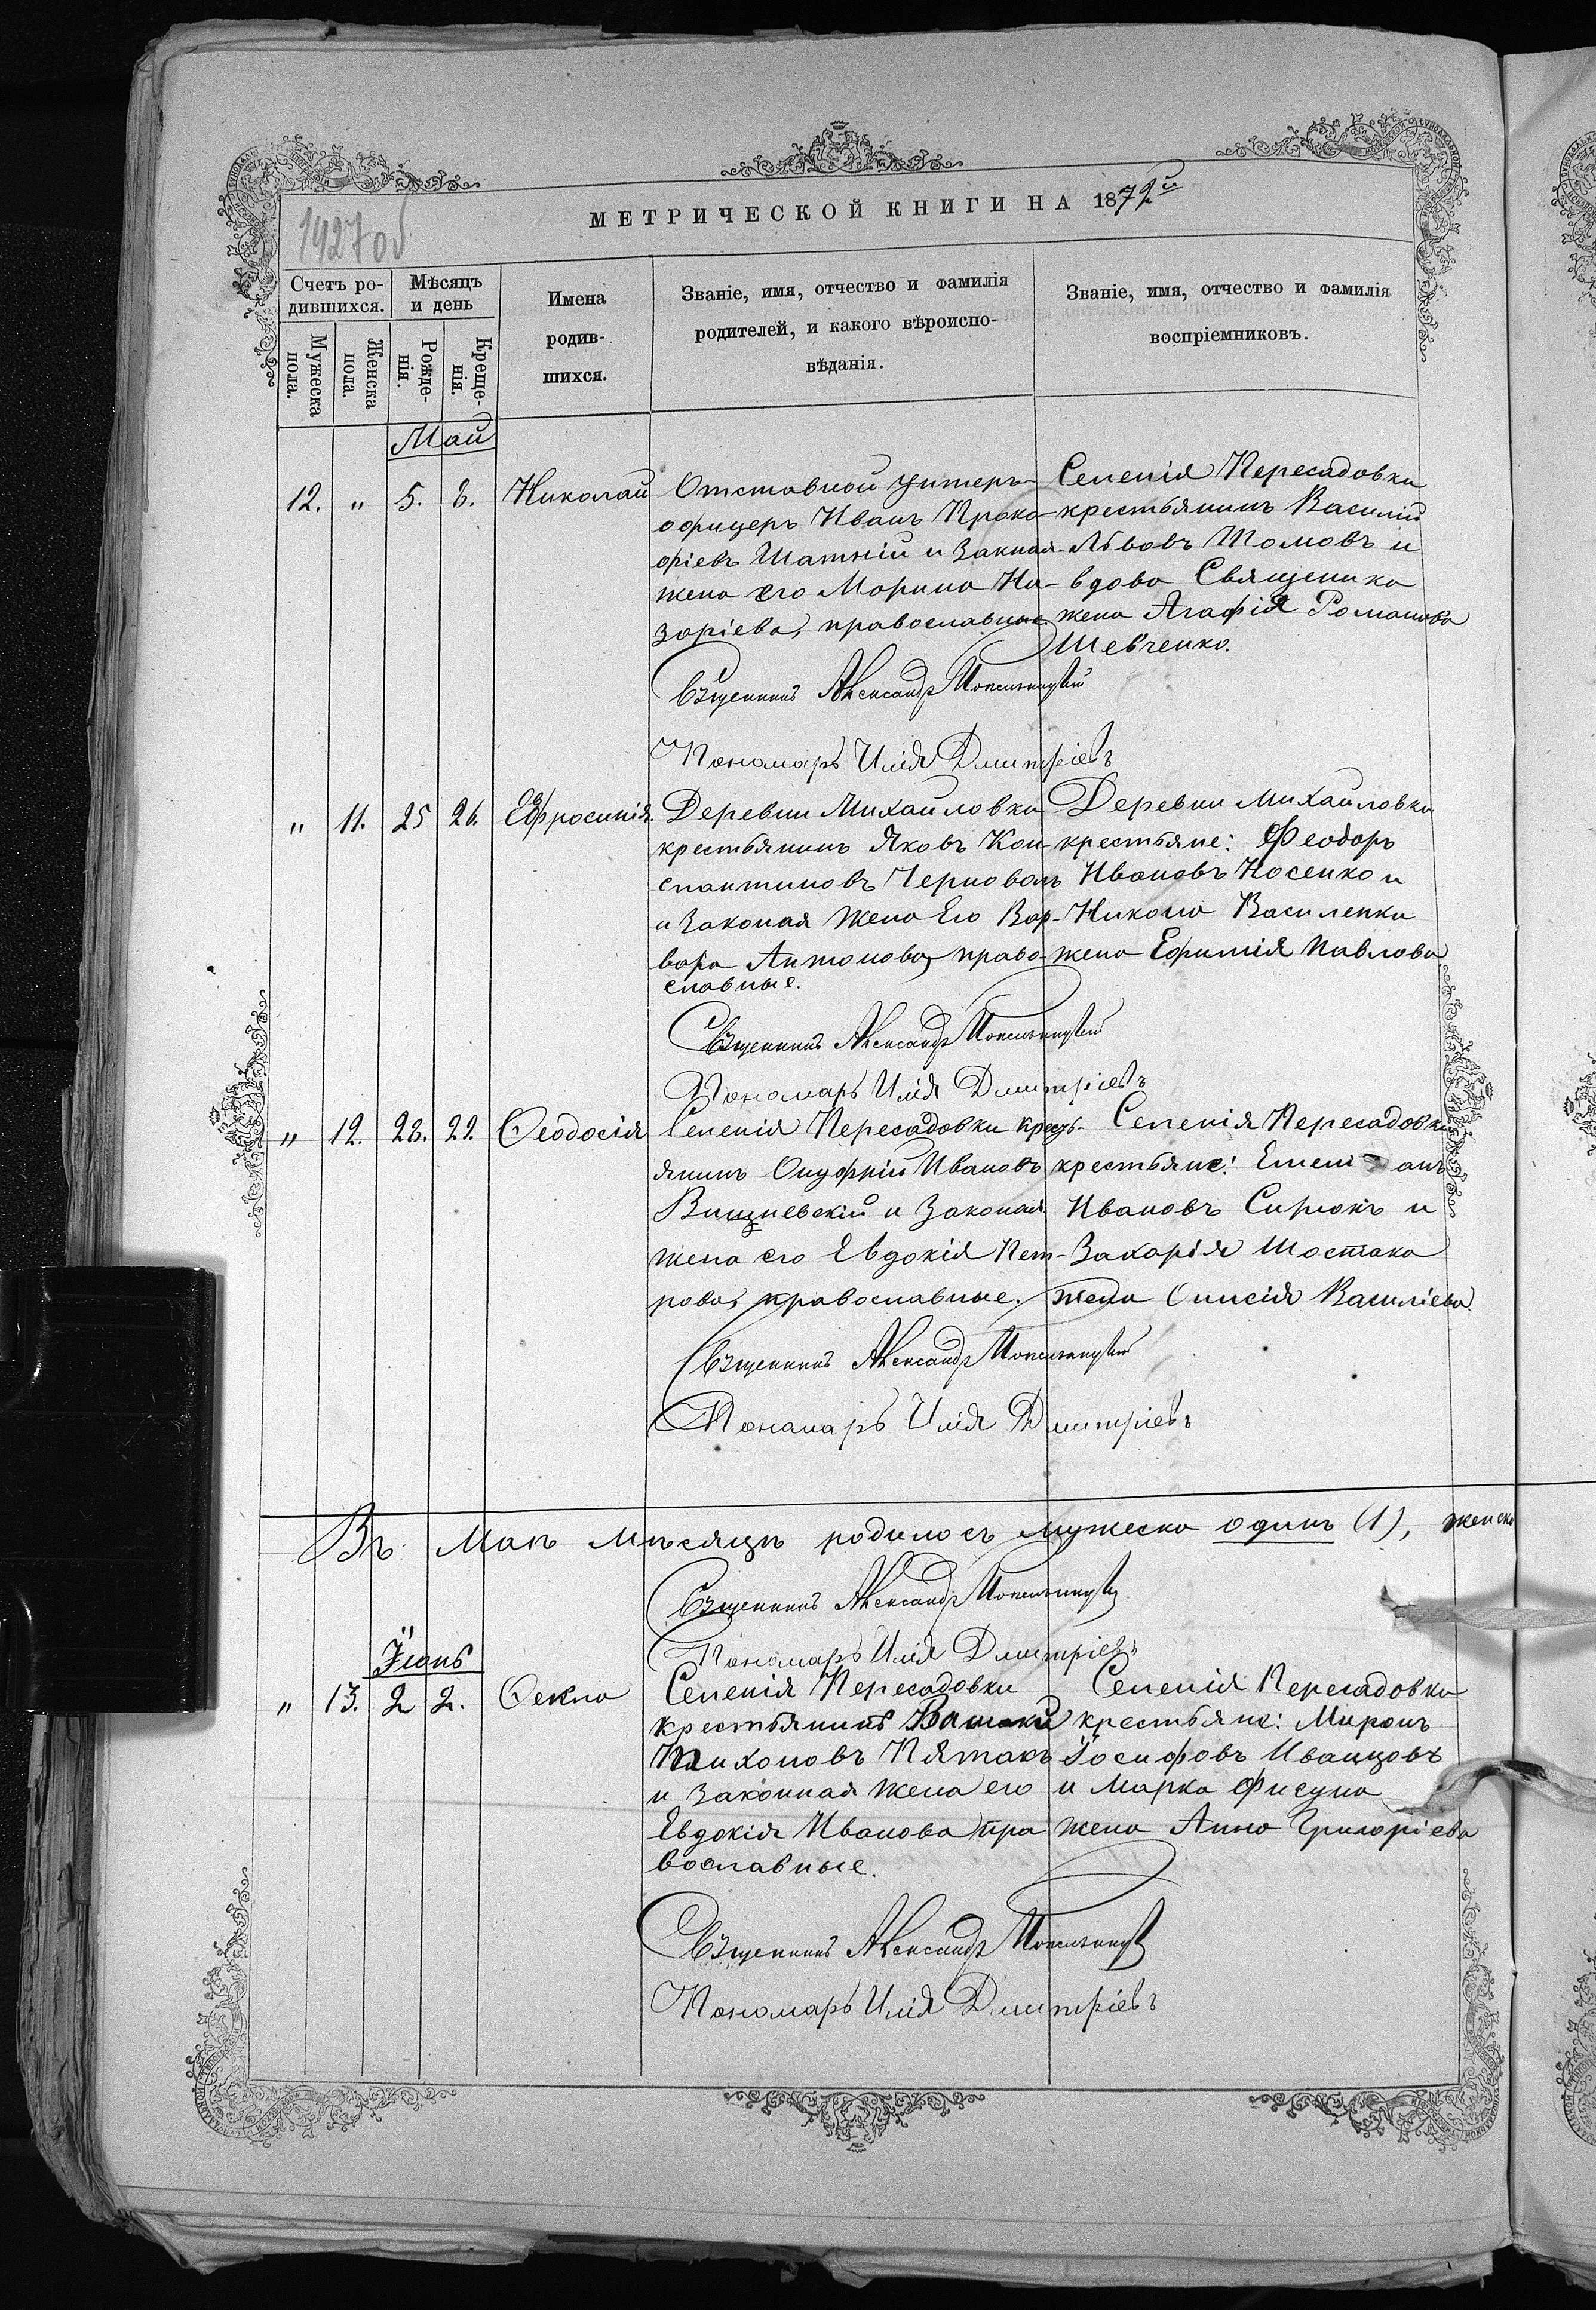 1927 об
МЕТРИЧЕСКОЙ КНИГИ НА 1872й
Счетъ ро-
дившихся.
Мѣсяцъ
и день
Имена
родив-
шихся.
Званіе, имя, отчество и фамилія
родителей, и какого вѣроиспо-
вѣданія.
Званіе, имя, отчество и фамилія
воспріемниковъ.
Мужеска
пола.
Женска
пола.
Рожде-
нія.
Креще-
нія.
Май
12. " 5. 8. Николай
Отставной унтеръ-
офицеръ Иванъ Проко-
фіевъ Шатній и закная
жена его Марина На-
заріева, православные
Селенія Пересадовки
крестьянинъ Василій
Львовъ Томовъ и
вдова Священика
жена Агафія Романова
Шевченко.
Священникъ Александръ
Пономарь Илія Дмитріевъ
" 11. 25 26. Евфросинія.
Деревни Михайловки
крестьянинъ Яковъ Кон-
стантиновъ Черноволъ
и законая жена Его Вар-
вара Антонова, право-
славные.
Деревни Михайловки
крестьяне: Феодоръ
Ивановъ Носенко и
Николы Василенки
жена Ефимія Павлова
Священникъ Александръ
Пономарь Илія Дмитріевъ
" 12. 28. 29. Ѳеодосія
Селенія Пересадовки крестъ-
янинъ Онуфрій Ивановъ
Вишневскій и законая
жена его Евдокія Пет-
рова, православные.
Селенія Пересадовки
крестьяне: Емеліанъ
Ивановъ Сирокъ и
Захарія Шостака
жена Онисія Василіева.
Священникъ Александръ
Пономарь Илія Дмитріевъ
Въ Маѣ мѣсяцѣ родилось мужеска одинъ (1), женска
Священникъ Александръ
Пономарь Илія Дмитріевъ
Іюнь
" 13. 2 2. Ѳекла
Селенія Пересадовки
крестьянинъ
Тихоновъ Пятакъ
и законная жена его
Евдокія Иванова пра
вославные.
Селенія Пересадовки
крестьяне: Миронъ
Іосифовъ Иванцовъ
и Марка Фисуна
жена Анна Григоріева
Священникъ Александръ
Пономарь Илія Дмитріевъ